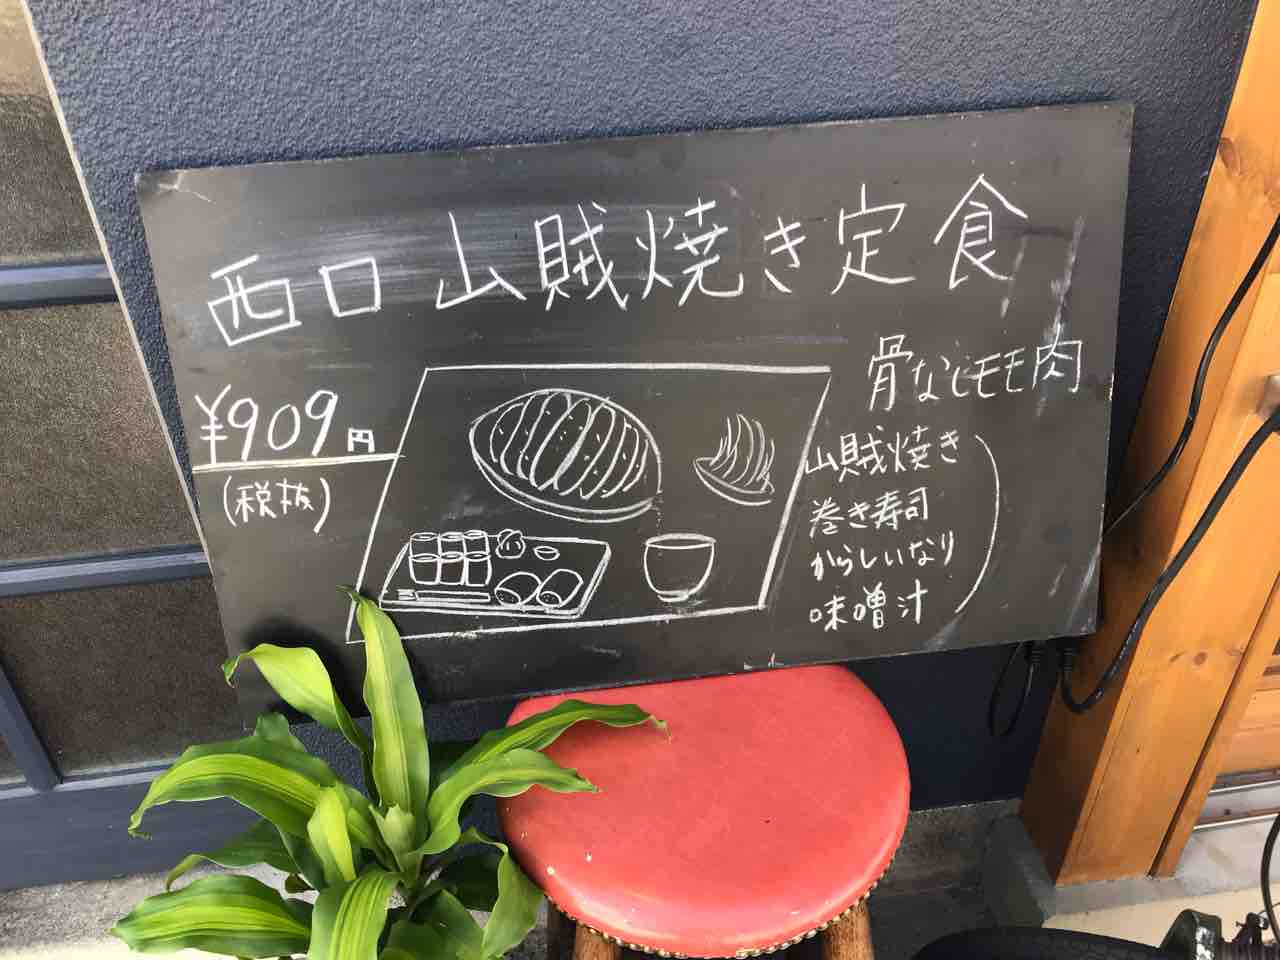 西口 山賊焼き定食
¥909円
(税抜)
骨なしモモ肉
山賊焼き
巻き寿司
からしいなり
味噌汁